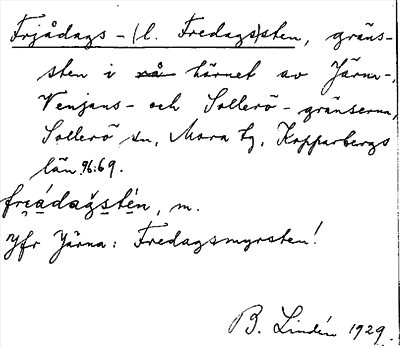 Frjådags-(l. Fredags)sten, gräns-
sten i hörnet av Järna-,
Venjans- och Sollerö-gränserna,
Sollerö sn, Mora tg, Kopparbergs
län 96:69.
m.
Jfr Järna: Fredagsmyrsten!
B. Lindén 1929.